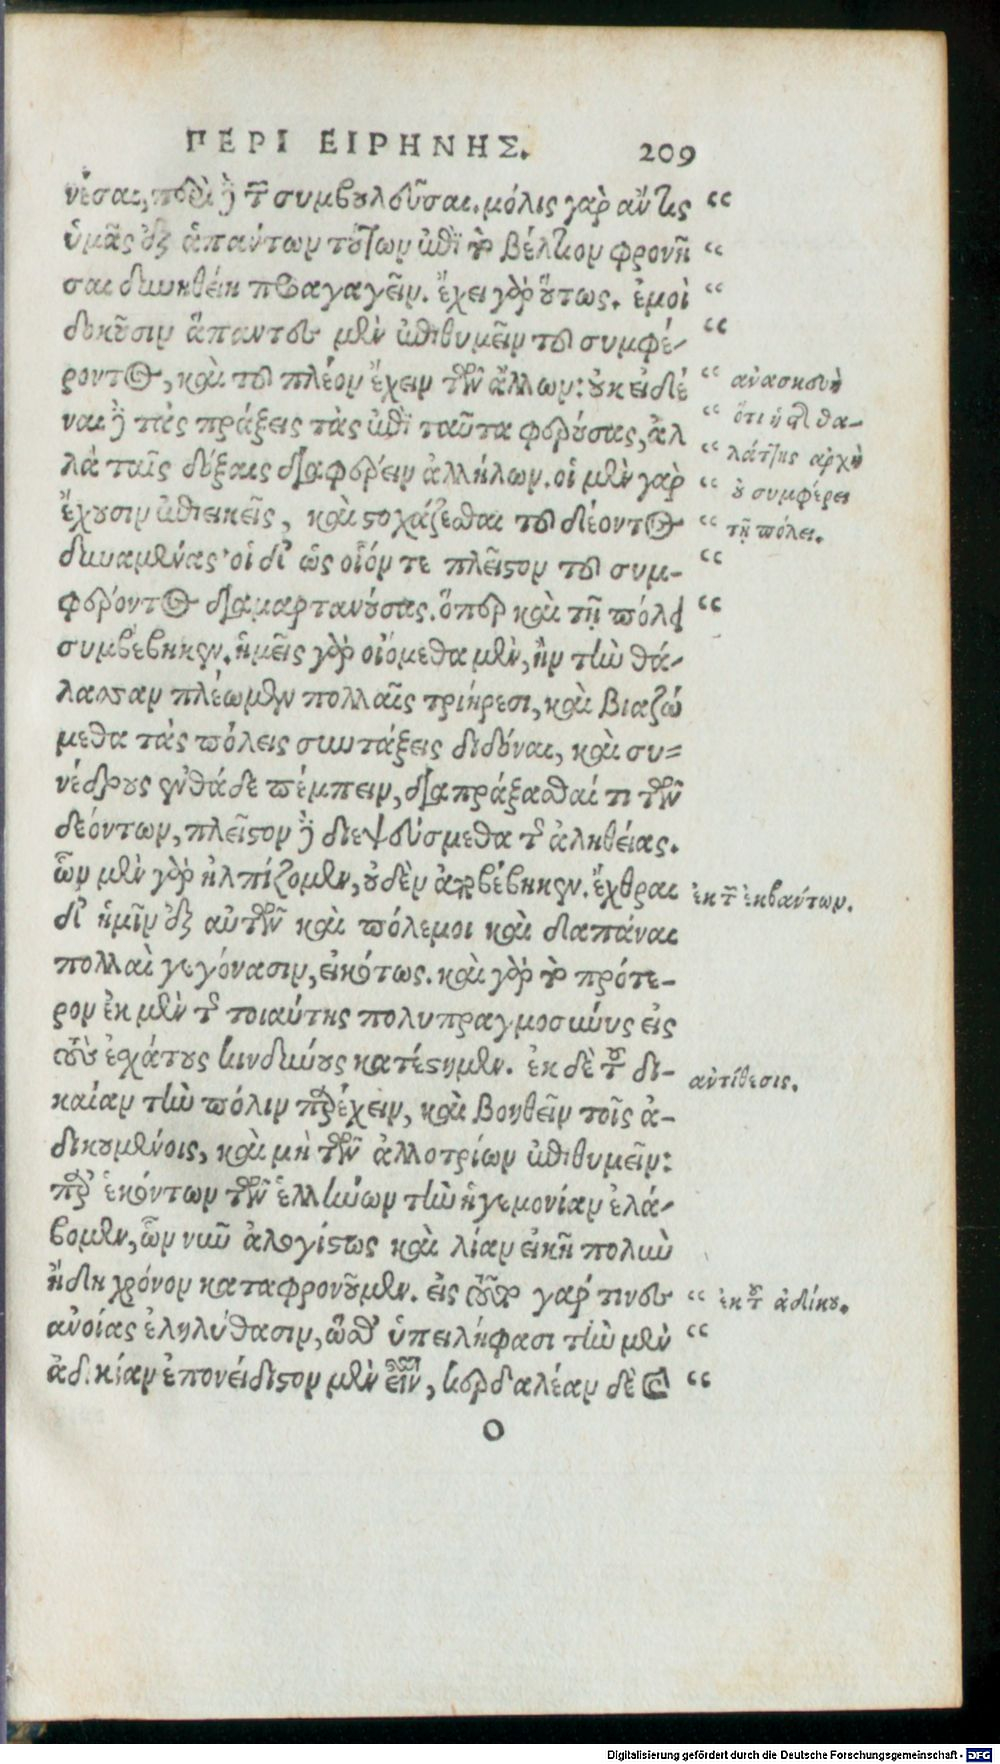 ΠΕΡΙ ΕΙΡΗΝΗΣ. 209
νέσαι, ποῖ δὲ τ῀ συμβουλεῦσαι. μόλις γὰρ ἄν τις “
ὑμᾶς ἐξ ἁπάντων τούτων ἐπὶ τὸ βέλτιον φρονῆ “
σαι δυνηθείη προαγαγεῖν. ἔχει γὰρ οὕτως. ἐμοὶ “
δοκοῦσιν ἅπαντες μὲν ἐπιθυμεῖν τοῦ συμφέ- “
ροντος, καὶ τοῦ πλέον ἔχειν τῶν ἄλλων: οὐκ εἰδέ “
ναι δὲ τὰς πράξεις τὰς ἐπὶ ταῦτα φερούσας, ἀλ “
λὰ ταῖς δόξαις διαφέρειν ἀλλήλων. οἱ μὲν γὰρ “
ἔχουσιν ἐπιεικεῖς, καὶ στοχάζεσθαι τοῦ δέοντος “
δυναμένας· οἱ δ' ὡς οἷόν τε πλεῖστον τοῦ συμ- “
φέροντος διαμαρτανούσας. ὅπερ καὶ τῇ πόλει “
συμβέβηκεν. ἡμεῖς γὰρ οἰόμεθα μὲν, ἢν τὴν θά-
λασσαν πλέωμεν πολλαῖς τριήρεσι, καὶ βιαζώ
μεθα τὰς πόλεις συντάξεις διδόναι, καὶ συ-
νέδρους ἐνθάδε πέμπειν, διαπράξασθαί τι τῶν
δεόντων, πλεῖστον δὲ διεψεύσμεθα τῆς ἀληθείας.
ὧν μὲν γὰρ ἠλπίζομεν, οὐδὲν ἀποβέβηκεν. ἔχθραι
δ' ἡμῖν ἐξ αὐτῶν καὶ πόλεμοι καὶ δαπάναι
πολλαὶ γεγόνασιν, εἰκότως. καὶ γὰρ τὸ πρότε-
ρον ἐκ μὲν τῆς τοιαύτης πολυπραγμοσύνης εἰς
τοὺς ἐσχάτους κινδύνους κατέστημεν. ἐκ δὲ τοῦ δι-
καίαν τὴν πόλιν παρέχειν, καὶ βοηθεῖν τοῖς ἀ-
δικουμένοις, καὶ μὴ τῶν ἀλλοτρίων ἐπιθυμεῖν:
παρ' ἑκόντων τῶν ἑλλήνων τὴν ἡγεμονίαν ἐλά-
βομεν, ὧν νῦν ἀλογίστως καὶ λίαν εἰκῆ πολὺν
ἤδη χρόνον καταφρονοῦμεν. εἰς τοῦτο γάρ τινες “
ἀνοίας ἐληλύθασιν, ὥσθ' ὑπειλήφασι τὴν μὲν “
ἀδικίαν ἐπονείδιστον μὲν εἶναι, κερδαλέαν δὲ καὶ “
Ο
ἀνασκευὴ
ὅτι ἡ κατὰ θα-
λάττης ἀρχὴ
οὐ συμφέρει
τῇ πόλει.
ἐκ τῶν ἐκβάντων.
ἀντίθεσις.
ἐκ τοῦ ἀδίκου.
Digitalisierung gefördert durch die Deutsche Forschungsgemeinschaft - DFG